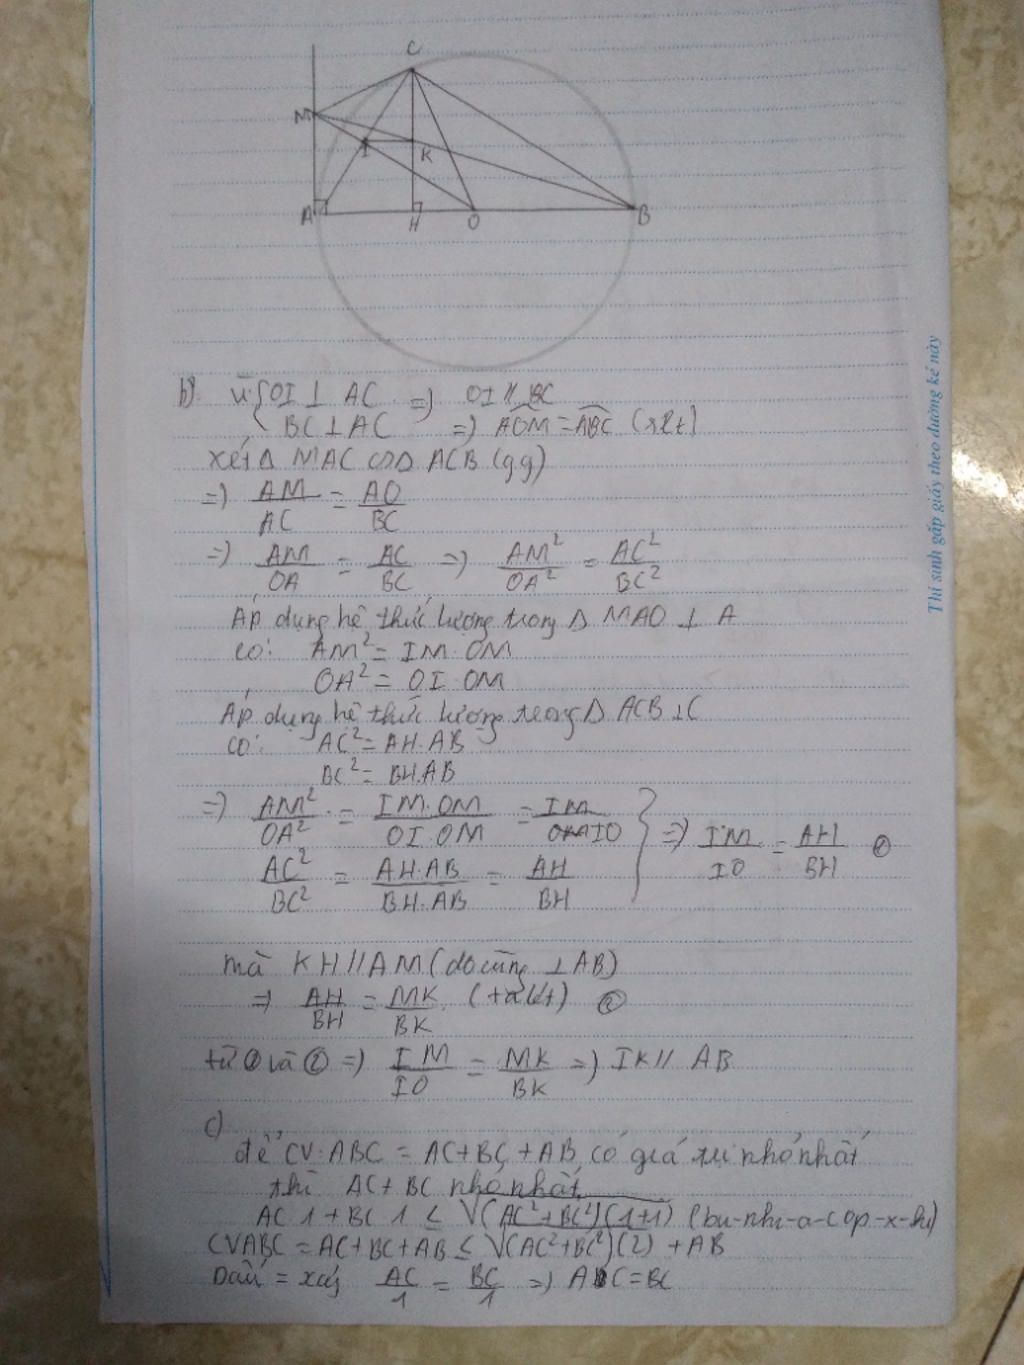 C
M
I
K
A
H
O
B
b) Vì { OI ⊥ AC => OI // BC
BC ⊥ AC => AOM = ABC (slt)
xét Δ MAC ∽ Δ ACB (gg)
=> AM/AC = AO/BC
=> AM/OA = AC/BC => AM²/OA² = AC²/BC²
Áp dụng hệ thức lượng trong Δ MAO ⊥ A
có: AM² = IM.OM
OA² = OI.OM
Áp dụng hệ thức lượng trong Δ ACB ⊥ C
có: AC² = AH.AB
BC² = BH.AB
=> AM²/OA² = IM.OM/OI.OM = IM/IO
AC²/BC² = AH.AB/BH.AB = AH/BH
} => IM/IO = AH/BH ①
mà KH // AM (do cùng ⊥ AB)
=> AH/BH = MK/BK (talét) ②
từ ① và ② => IM/IO = MK/BK => IK // AB
c)
để CV.ABC = AC + BC + AB có giá trị nhỏ nhất
thì AC + BC nhỏ nhất
AC 1 + BC 1 ≤ √(AC²+BC²)(1+1) (bu-nhi-a-cop-x-ki)
CVABC = AC + BC + AB ≤ √(AC²+BC²)(2) + AB
Dấu = xảy AC/1 = BC/1 => AC = BC
Thí sinh gấp giấy theo đường kẻ này